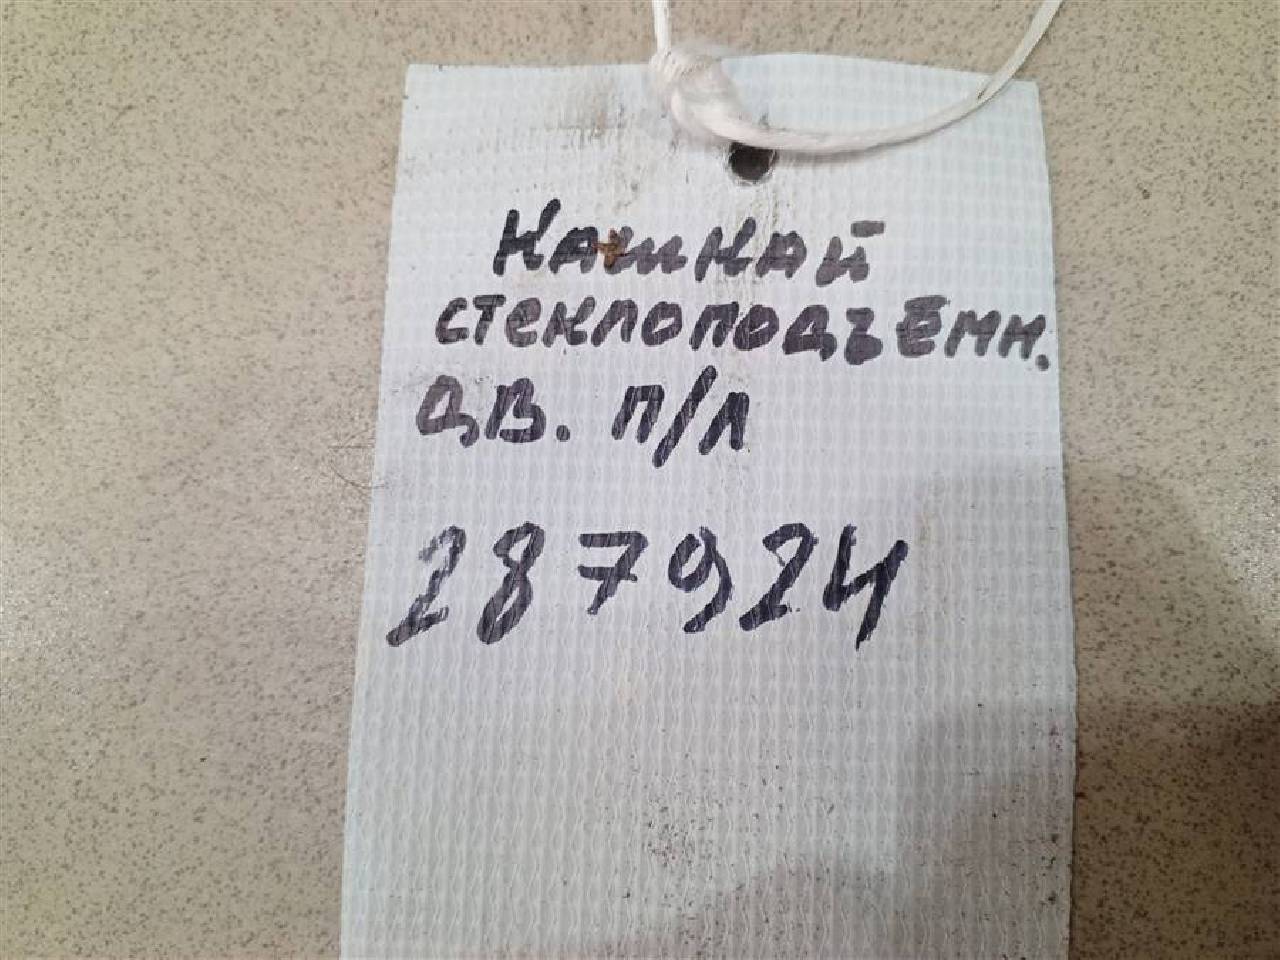 Кашкай
стеклоподъемн.
дв. п/л
287924